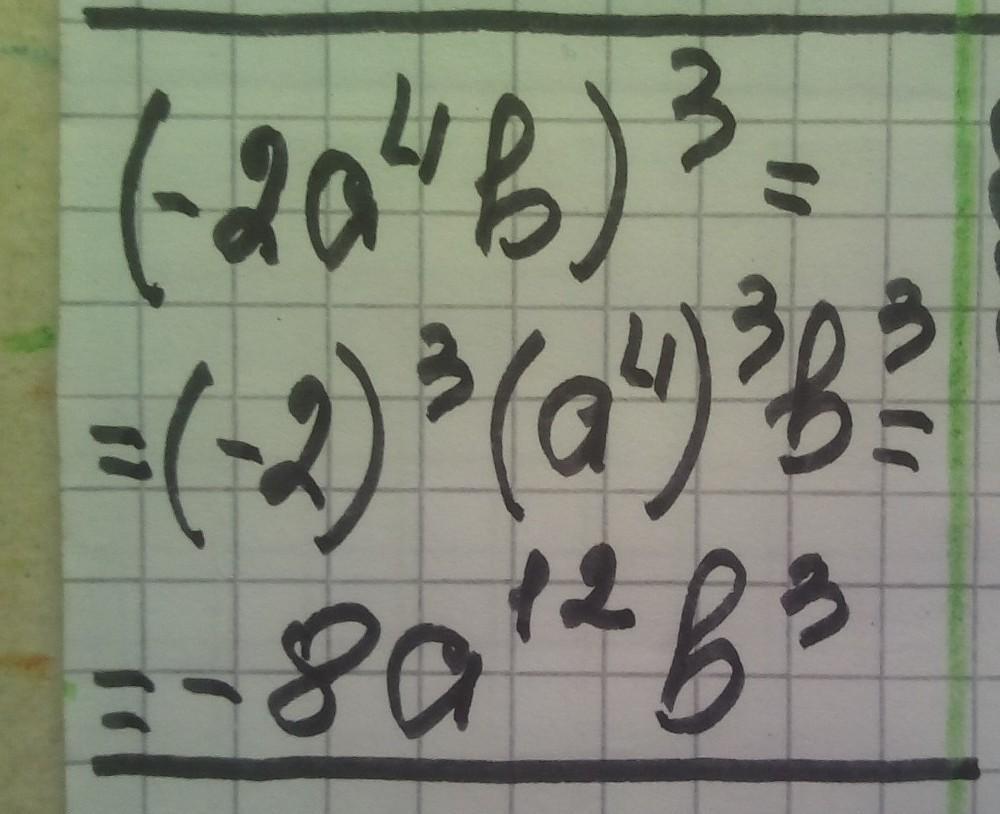 (-2a⁴b)³=
=(-2)³(a⁴)³b³=
=-8a¹²b³